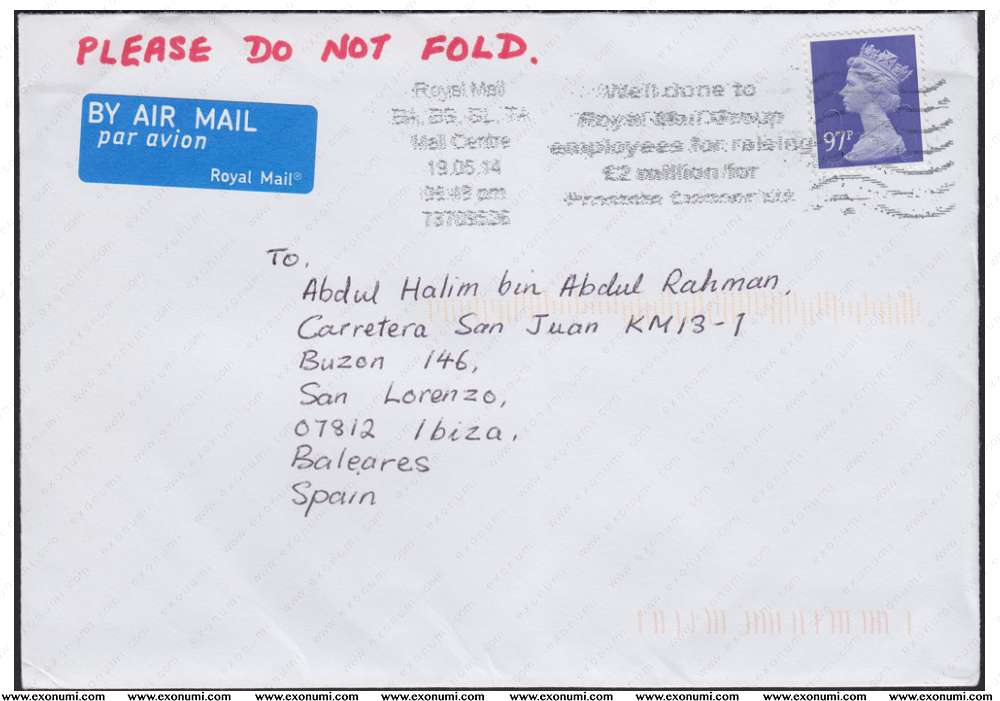 PLEASE DO NOT FOLD.
BY AIR MAIL
par avion
Royal Mail®
Royal Mail
BA, BS, GL, TA
Mail Centre
19.05.14
73703636
Well done to
Royal Mail Group
employees for raising
£2 million for
Prostate Cancer UK
97P
To,
Abdul Halim bin Abdul Rahman,
Carretera San Juan KM13-1
Buzon 146,
San Lorenzo,
07812 Ibiza,
Baleares
Spain
www.exonumi.com www.exonumi.com www.exonumi.com www.exonumi.com www.exonumi.com www.exonumi.com www.exonumi.com www.exonumi.com